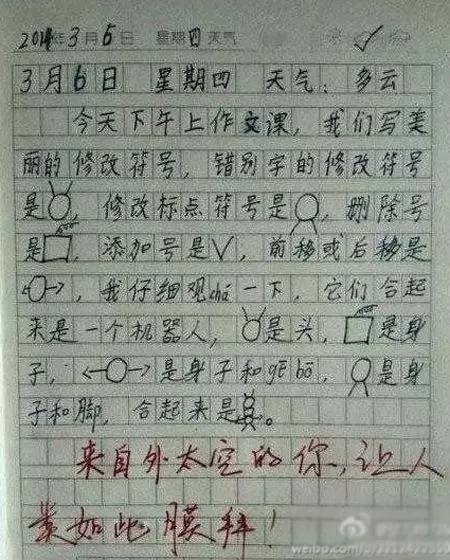 2014年3月6日 星期四 天气
3月6日 星期四 天气：多云
今天下午上作文课，我们写美
丽的修改符号，错别字的修改符号
是 ，修改标点符号是 ，删除号
是 ，添加号是√，前移或后移是
，我仔细观chá一下，它们合起
来是一个机器人， 是头， 是身
子， 是身子和gē bō， 是身
子和脚，合起来是 。
来自外太空的你，让人
类如此膜拜！
weibo.com/